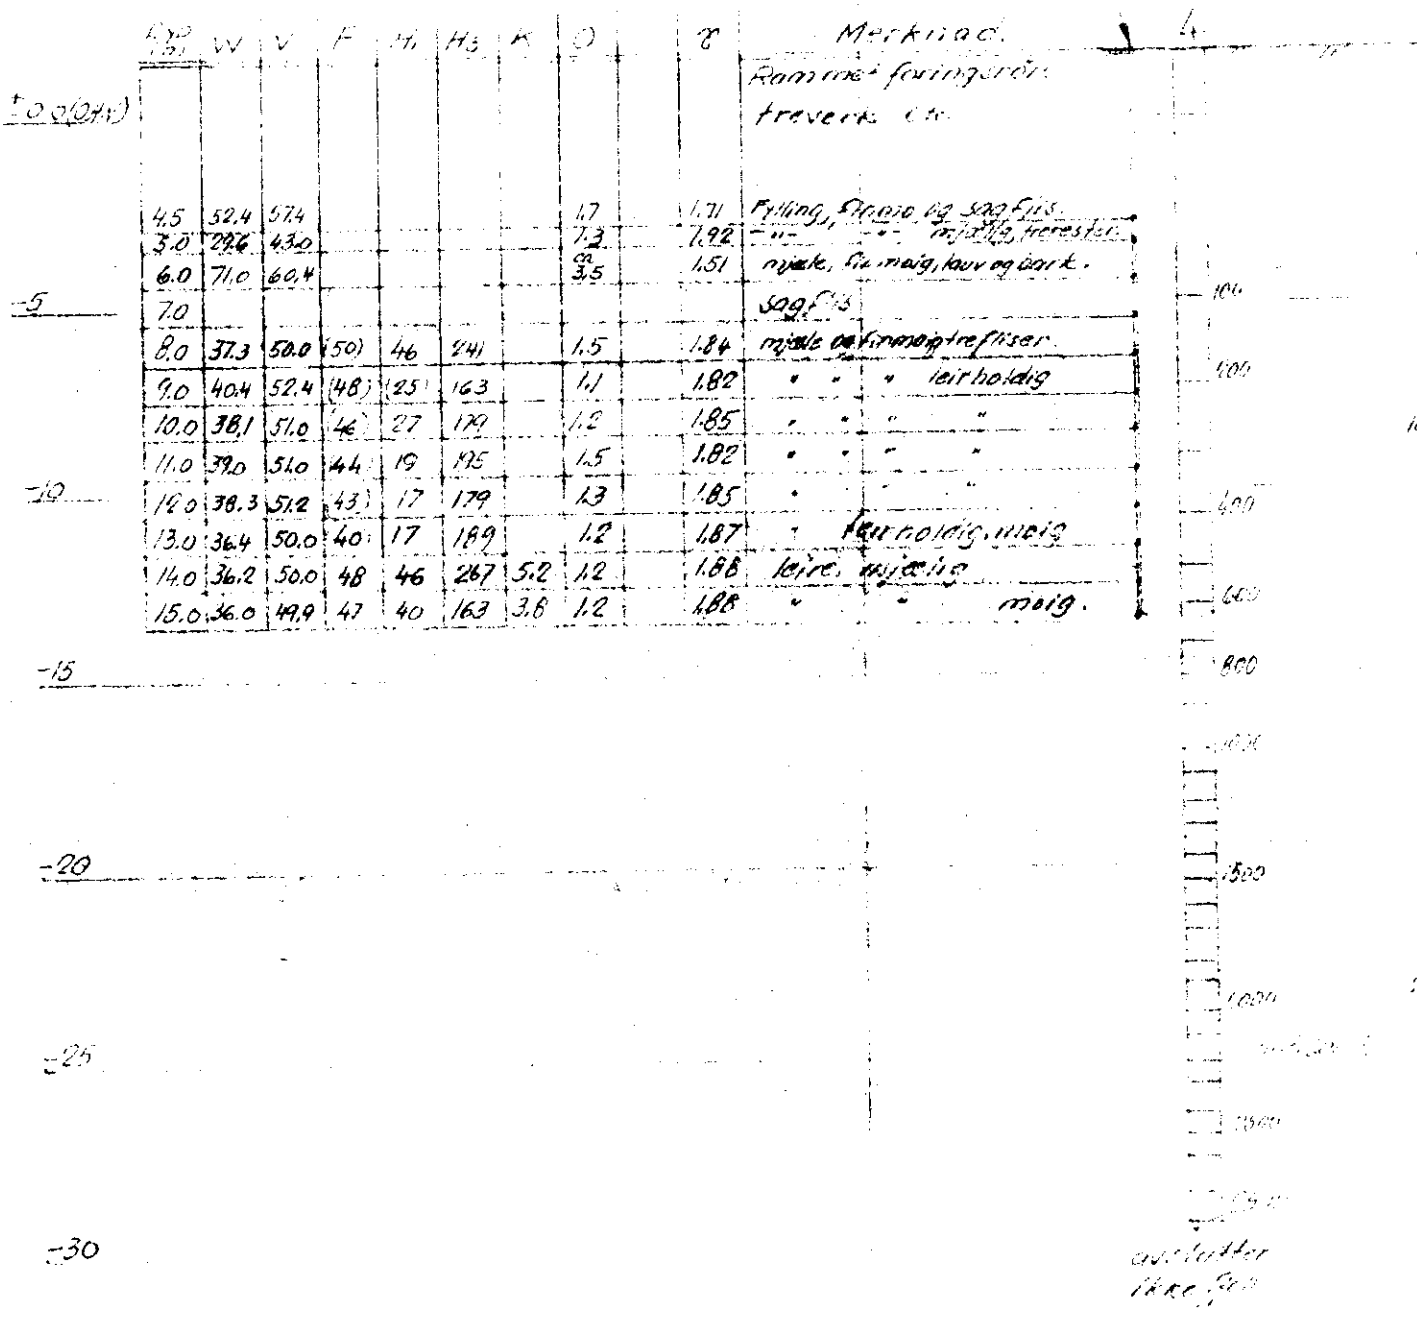 W V F H₁ H₃ K O γ Merknad. 4
Rammet foringsrör.
±0.0
treverk
4.5 52.4 57.4 1.7 1.71 Fylling, finmo og sagflis.
5.0 29.6 43.0 1.3 1.92 -"- " mjælig, trerester.
6.0 71.0 60.4 ca 3.5 1.51 mjæle, finmoig, lauv og bark.
-5 7.0 sagflis 100
8.0 37.3 50.0 (50) 46 241 1.5 1.84 mjæle og finmoig trefliser.
9.0 40.4 52.4 (48) (25) 163 1.1 1.82 " " " leirholdig 200
10.0 38.1 51.0 (46) 27 179 1.2 1.85 " " " "
11.0 39.0 51.0 (44) 19 195 1.5 1.82 " " " "
-10 12.0 38.3 51.2 (43) 17 179 1.3 1.85 " " " " 400
13.0 36.4 50.0 (40) 17 189 1.2 1.87 " leirholdig, moig
14.0 36.2 50.0 48 46 267 5.2 1.2 1.88 leire, mjælig
15.0 36.0 49.9 47 40 163 3.8 1.2 1.88 " " moig. 600
-15 800
1000
-20 1500
-25
-30 avslutter
ikke fjell